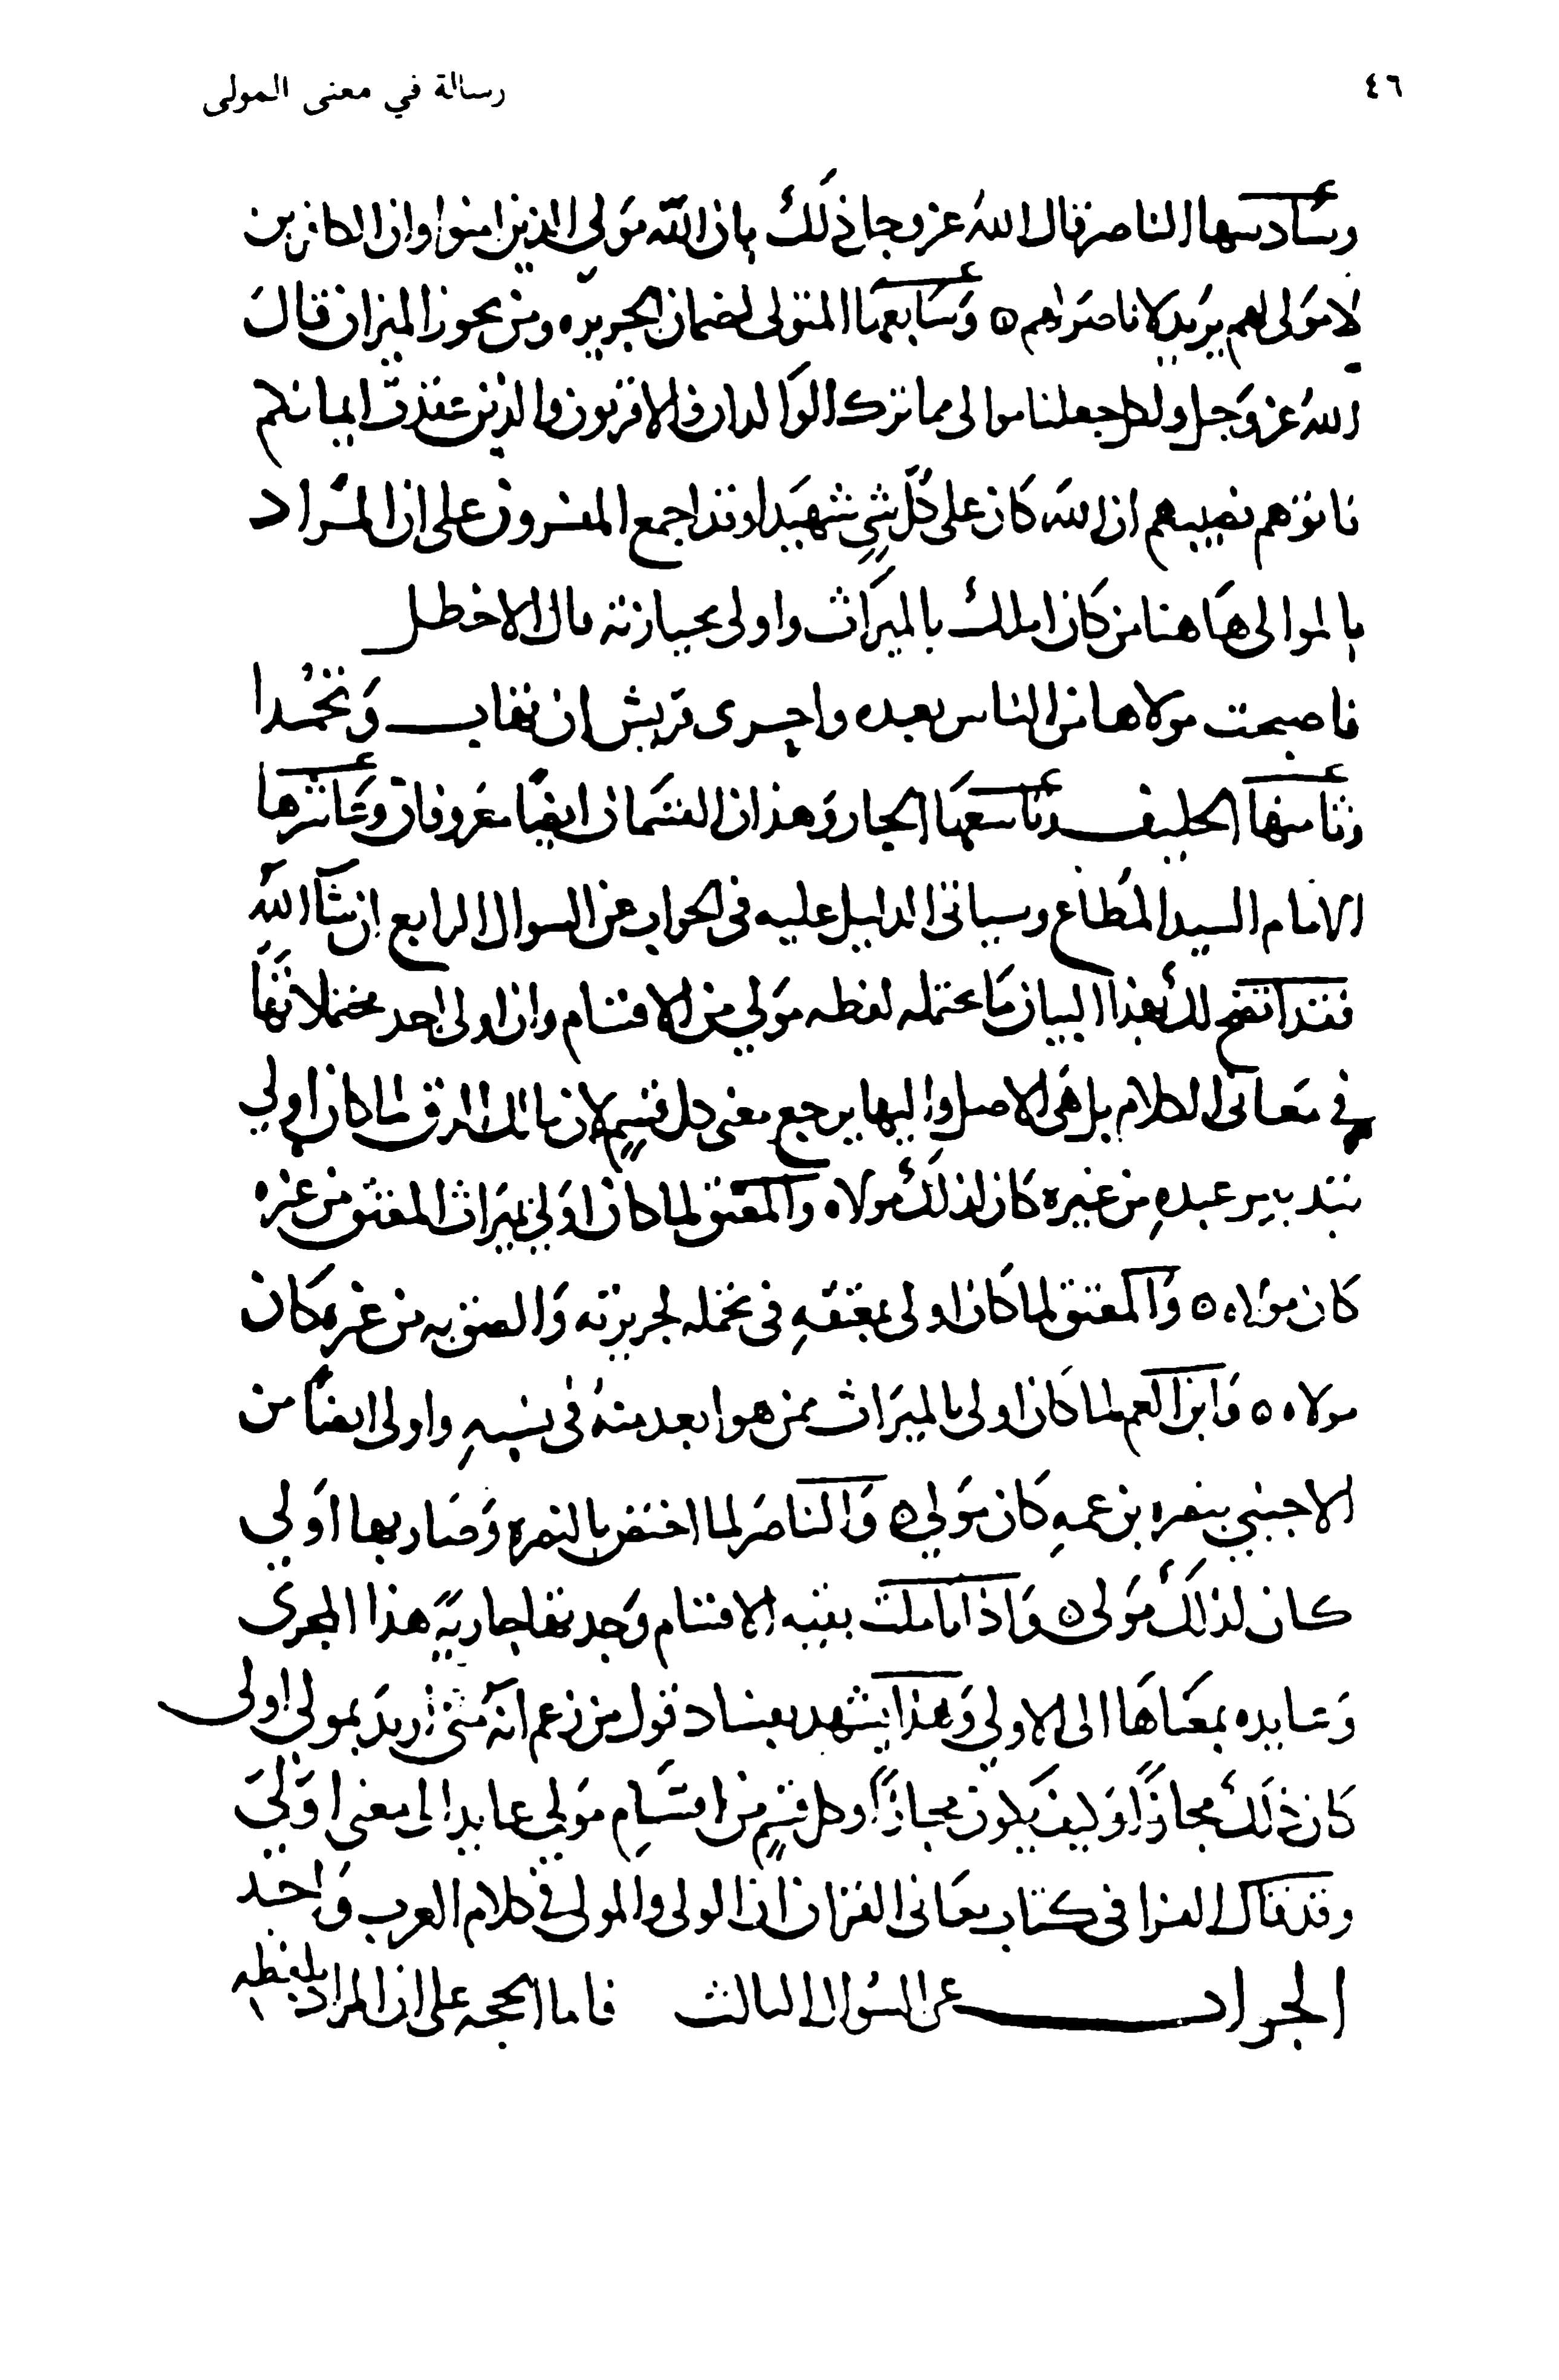 ٤٦
رسالة في معنى المولى
وسادسها الناصر قال الله عز وجل ذلك بان الله مولى الذين امنوا وان الكافرين
لا مولى لهم يريد لا ناصر لهم ٥ وسابعها المتولى لضمان الجريره ومن يحوز الميراث قال
الله عز وجل ولكل جعلنا موالى مما ترك الوالدان والاقربون والذين عقدت ايمانكم
فاتوهم نصيبهم ان الله كان على كل شي شهيدا وقد اجمع المفسرون على ان المراد
بالموالى هاهنا من كان املك بالميراث واولى بحيازته قال الاخطل
فاصبحت مولاها من الناس بعده واحرى قريش ان تهاب وتحمدا
وثامنها الحليف وتاسعها الجار وهذان القسمان ايضا معروفان وعاشرها
الامام السيد المطاع وسياتى الدليل عليه فى الجواب عن السوال الرابع ان شا الله
فقد اتضح لك بهذا البيان ما يحتمله لفظه مولى من الاقسام وان اولى احد محتملاتها
في معانى الكلام بل هى الاصل واليها يرجع معنى كل قسم لان مالك الرق لما كان اولى
بتدبير عبده من غيره كان لذلك مولاه والمعتق لما كان اولى بميراث المعتق من غيره
كان مولاه ٥ والمعتق لما كان اولى بمعتقه فى تحمله لجريرته والصق به من غيره كان
مولاه ٥ وابن العم لما كان اولى بالميراث ممن هو ابعد منه فى نسبه واولى ايضا من
الاجنبي بنصره بن عمه كان مولى ٥ والناصر لما اختص بالنصره وصار بها اولى
كان لذلك مولى ٥ واذا تاملت بقيه الاقسام وجدتها جارية هذا المجرى
وعايده بمعناها الى الاولى وهذا يشهد بفساد قول من زعم انه متى اريد بمولى اولى
كان ذلك مجازا وكيف يكون مجازا وكل قسم من اقسام مولى عايد الى معنى اولى
وقد قال الفرا فى كتاب معانى القران ان الولى والمولى في كلام العرب واحد
الجواب عن السوال الثالث فاما الحجه على ان المراد بلفظه